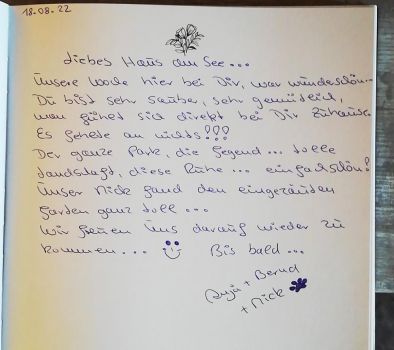 18.08.22
Liebes Haus am See...
Unsere Woche hier bei Dir, war wunderschön...
Du bist sehr sauber, sehr gemütlich,
man fühlt sich direkt bei Dir Zuhause.
Es fehlte an nichts!!!
Der ganze Park, die Gegend... tolle
Landschaft, diese Ruhe... einfach schön!
Unser Nick fand den eingezäunten
Garten ganz toll...
Wir freuen uns darauf wieder zu
kommen... Bis bald...
Anja + Bernd
+ Nick